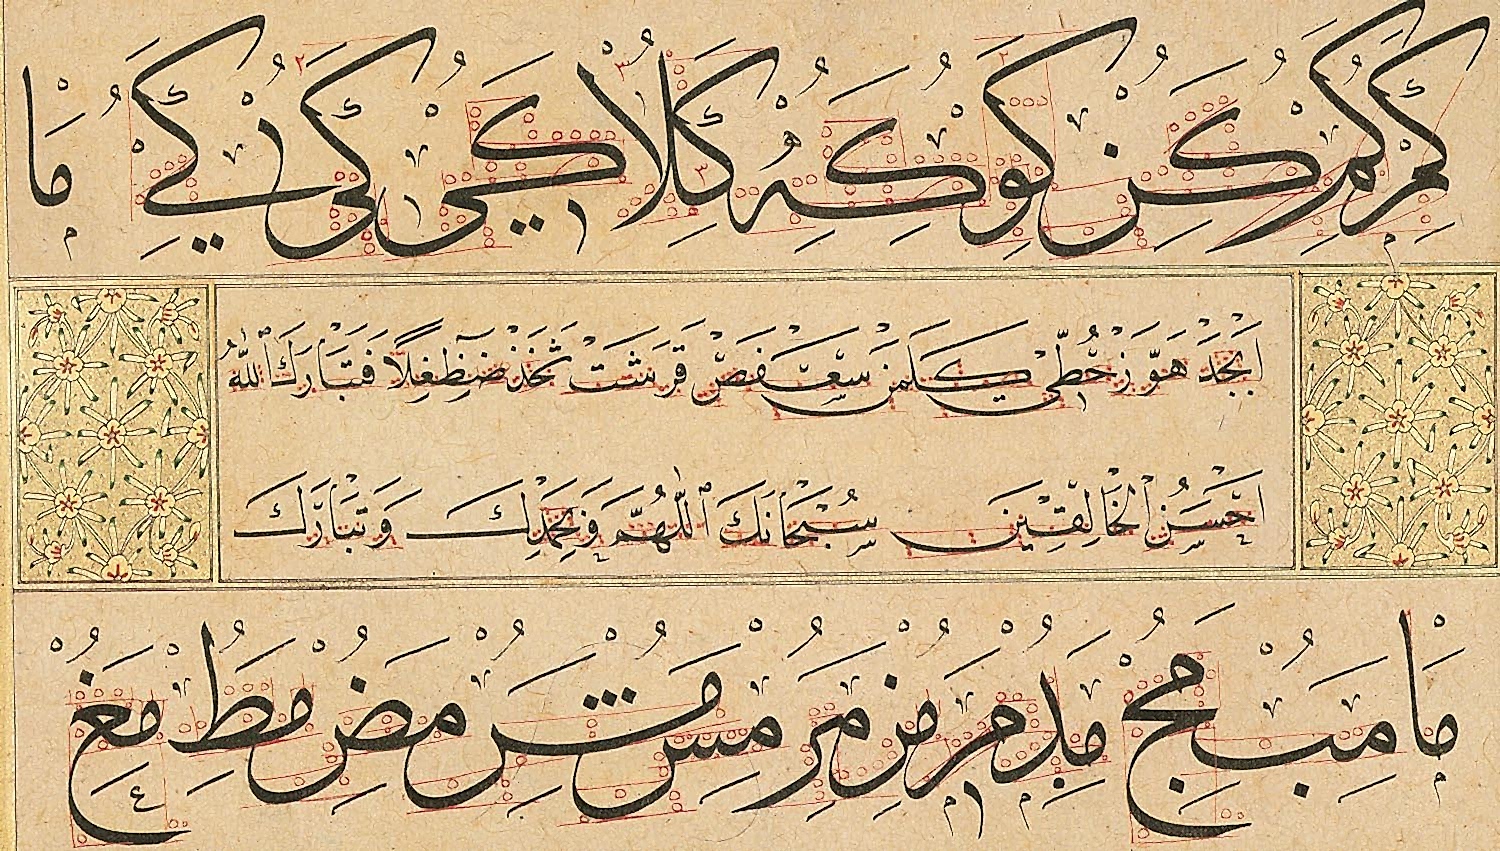 كم كم كن كو كه كلا كي كي كي ما
ابجد هوز حطي كلمن سعفص قرشت ثخذ ضظغلا فتبارك الله
احسن الخالقين سبحانك اللهم وبحمدك وتبارك
ما مب مج مد مر مز مر مس مش مض مط مغ